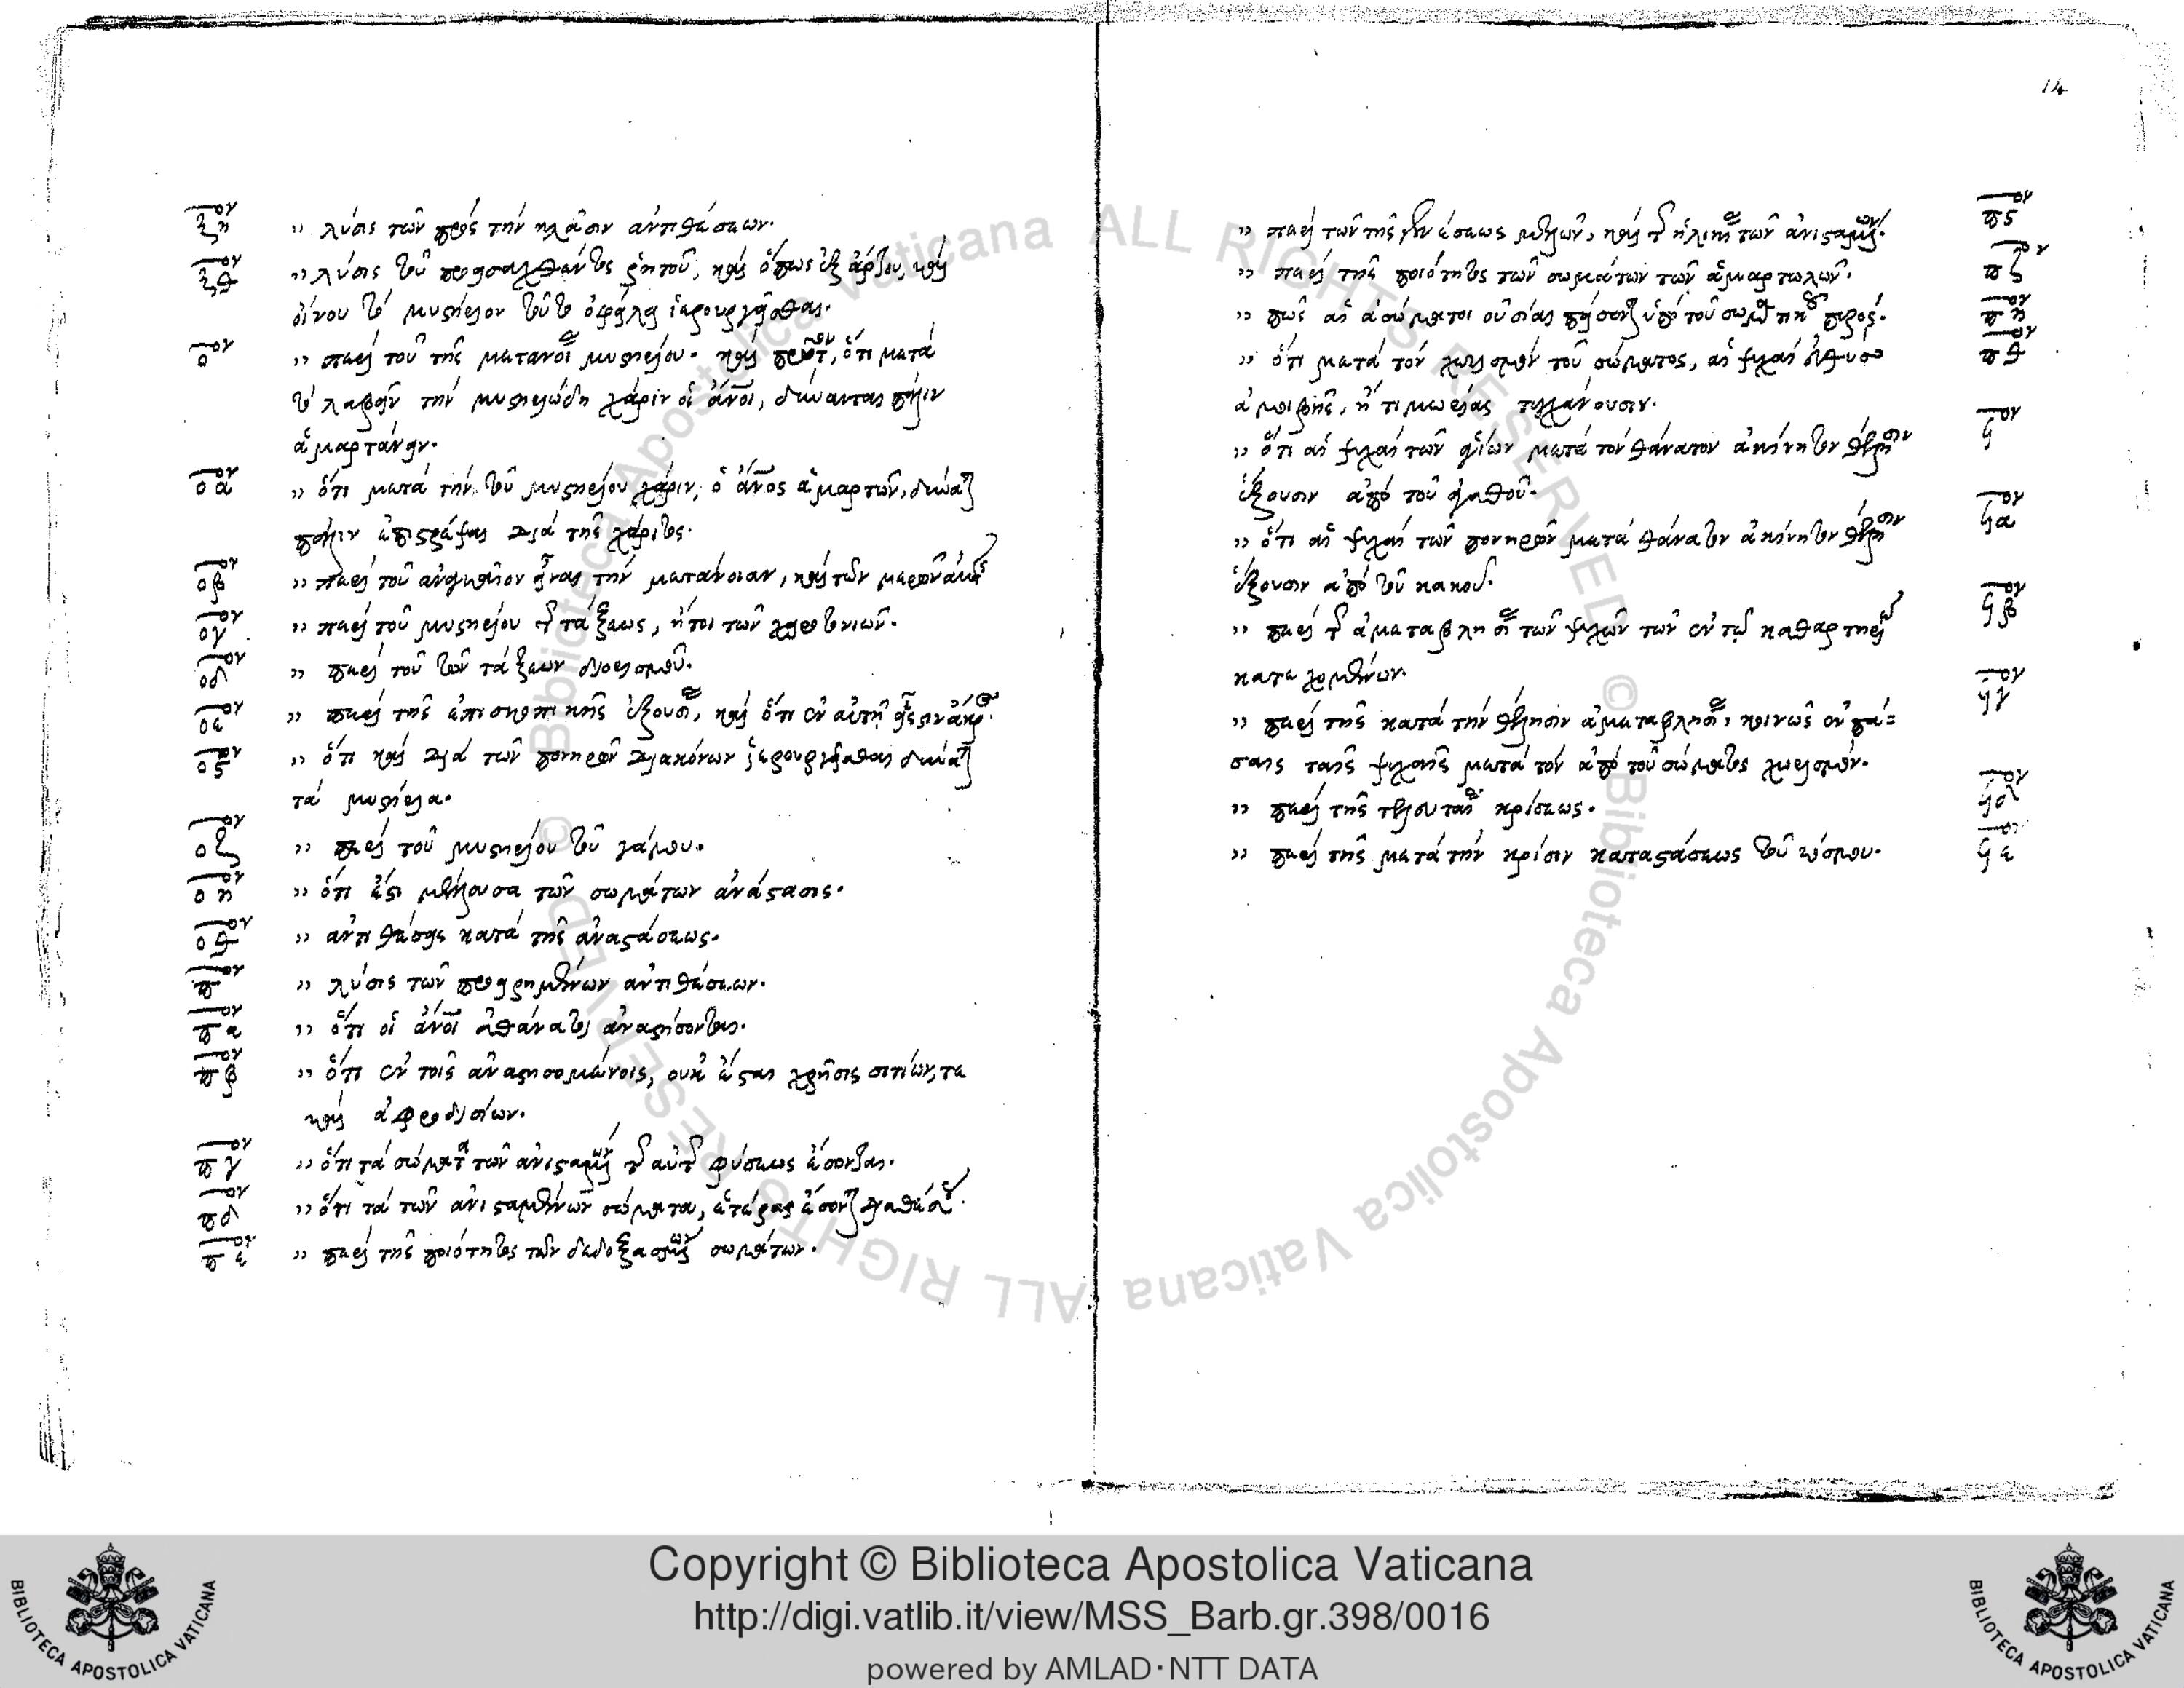 ξη^ον " λύσις τῶν πρὸς τὴν κλᾶσιν ἀντιθέσεων.
ξθ^ον " λύσις τοῦ προσαχθέντος ῥητοῦ, καὶ ὅπως ἐξ ἄρτου, καὶ
οἴνου τὸ μυστήριον τοῦτο ὀφείλει ἱερουργεῖσθαι.
ο^ον " περὶ τοῦ τῆς μετανοί μυστηρίου. καὶ πρῶτ^ον, ὅτι μετὰ
τὸ λαβεῖν τὴν μυστηριώδη χάριν οἱ ἄνοι, δύνανται πάλιν
ἁμαρτάνειν.
οα^ον " ὅτι μετὰ τὴν τοῦ μυστηρίου χάριν, ὁ ἄνος ἁμαρτῶν, δύναται
πάλιν ἐπιστρέψαι διὰ τῆς χάριτος.
οβ^ον " περὶ τοῦ ἀναγκαῖον εἶναι τὴν μετάνοιαν, καὶ τῶν μερῶν αὐτῆς
ογ^ον " περὶ τοῦ μυστηρίου τῆς τάξεως, ἤτοι τῶν χειροτονιῶν.
οδ^ον " περὶ τοῦ τῶν τάξεων διορισμοῦ.
οε^ον " περὶ τῆς ἐπισκοπικῆς ἐξουσί, καὶ ὅτι ἐν αὐτῇ εἷς ἐστιν ἄκρος.
οϛ^ον " ὅτι καὶ διὰ τῶν πονηρῶν διακόνων ἱερουργεῖσθαι δύναται
τὰ μυστήρια.
οζ^ον " περὶ τοῦ μυστηρίου τοῦ γάμου.
οη^ον " ὅτι ἔστι μέλλουσα τῶν σωμάτων ἀνάστασις.
οθ^ον " ἀντιθέσεις κατὰ τῆς ἀναστάσεως.
π^ον " λύσις τῶν προειρημένων ἀντιθέσεων.
πα^ον " ὅτι οἱ ἄνοι ἀθάνατοι ἀναστήσονται.
πβ^ον " ὅτι ἐν τοῖς ἀναστησομένοις, οὐκ ἔσται χρῆσις σιτίων, τε
καὶ ἀφροδισίων.
πγ^ον " ὅτι τὰ σώματα τῶν ἀνισταμένων τῆς αὐτῆς φύσεως ἔσονται.
πδ^ον " ὅτι τὰ τῶν ἀνισταμένων σώματα, ἑτέρας ἔσονται διαθέσεως.
πε^ον " περὶ τῆς ποιότητος τῶν δεδοξασμένων σωμάτων.
14
" περὶ τῶν τῆς γεννέσεως μελῶν, καὶ τῆς ἡλικί τῶν ἀνισταμένων. πϛ^ον
" περὶ τῆς ποιότητος τῶν σωμάτων τῶν ἁμαρτωλῶν. πζ^ον
" πῶς αἱ ἀσώματοι οὐσίαι πείσονται ὑπὸ τοῦ σωματικοῦ πυρός. πη^ον
" ὅτι μετὰ τὸν χωρισμὸν τοῦ σώματος, αἱ ψυχαὶ εὐθὺς πθ^ον
ἀμοιβῆς, ἢ τιμωρίας τυγχάνουσιν.
" ὅτι αἱ ψυχαὶ τῶν ἁγίων μετὰ τὸν θάνατον ἀκίνητον θέλησιν ϟ^ον
ἕξουσιν ἀπὸ τοῦ ἀγαθοῦ.
" ὅτι αἱ ψυχαὶ τῶν πονηρῶν μετὰ θάνατον ἀκίνητον θέλησιν ϟα^ον
ἕξουσιν ἀπὸ τοῦ κακοῦ.
" περὶ τῆς ἀμεταβλησί τῶν ψυχῶν τῶν ἐν τῷ καθαρτηρίῳ ϟβ^ον
κατεχομένων.
" περὶ τῆς κατὰ τὴν θέλησιν ἀμεταβλησί, κοινῶς ἐν πά= ϟγ^ον
σαις ταῖς ψυχαῖς μετὰ τὸν ἀπὸ τοῦ σώματος χωρισμόν.
" περὶ τῆς τελευταί κρίσεως. ϟδ^ον
" περὶ τῆς μετὰ τὴν κρίσιν καταστάσεως τοῦ κόσμου. ϟε^ον
© Biblioteca Apostolica Vaticana ALL RIGHTS RESERVED © Biblioteca Apostolica Vaticana ALL RIGHTS RESERVED
Copyright © Biblioteca Apostolica Vaticana
http://digi.vatlib.it/view/MSS_Barb.gr.398/0016
powered by AMLAD·NTT DATA
BIBLIOTECA APOSTOLICA VATICANA
BIBLIOTECA APOSTOLICA VATICANA